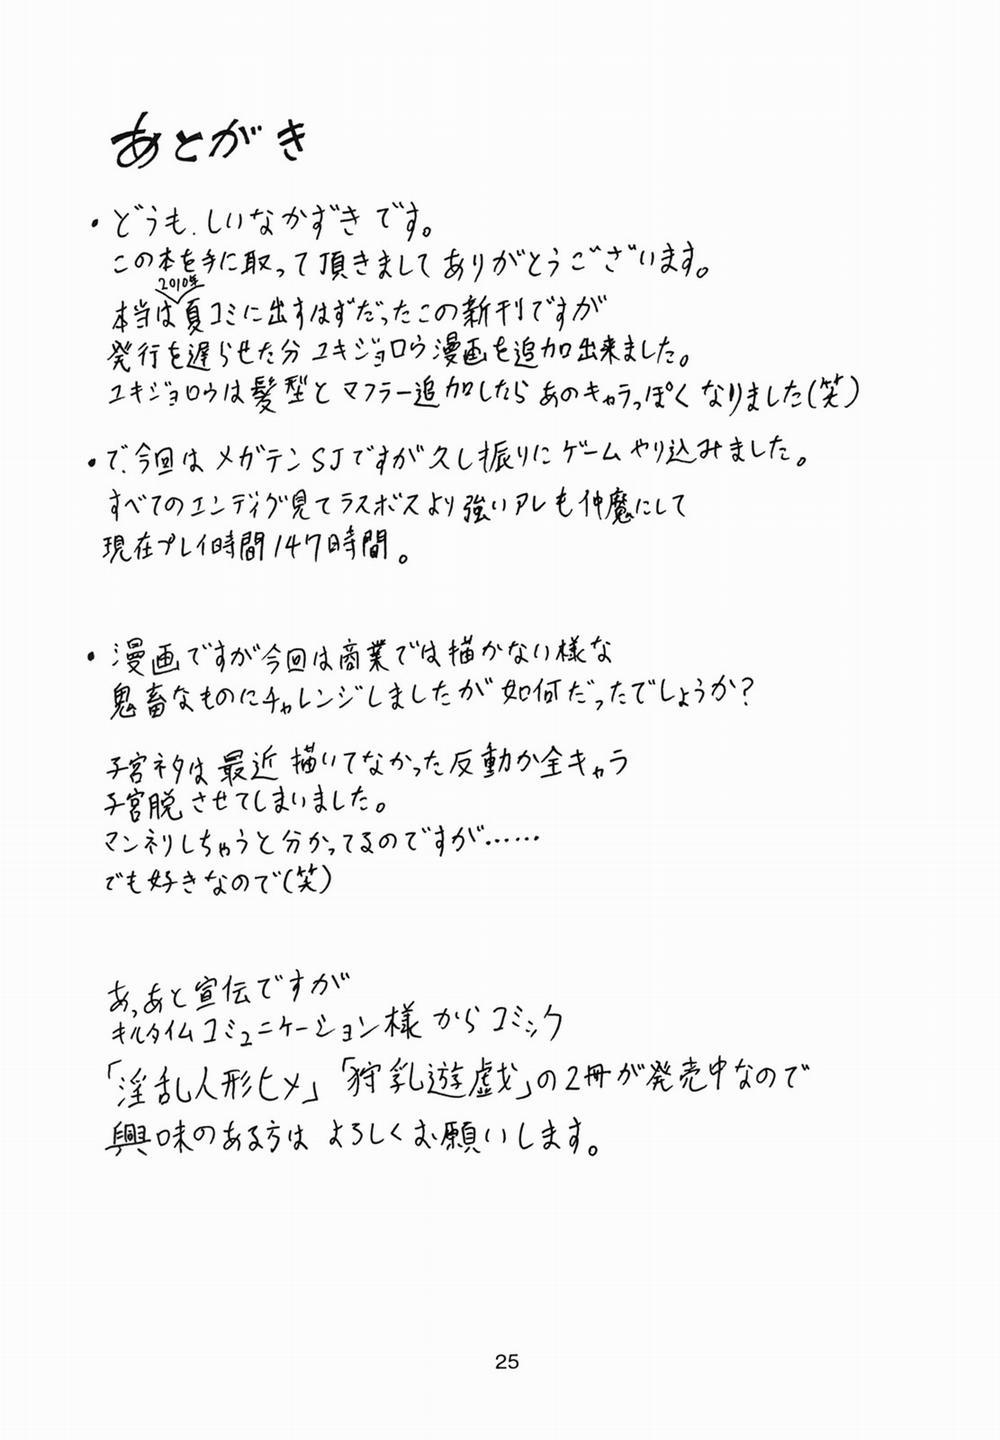 あとがき
・どうも、しいなかずきです。
この本を手に取って頂きましてありがとうございます。
2010年
本当は夏コミに出すはずだったこの新刊ですが
発行を遅らせた分ユキジョロウ漫画を追加出来ました。
ユキジョロウは髪型とマフラー追加したらあのキャラっぽくなりました(笑)
・で、今回はメガテンSJですが久し振りにゲームやり込みました。
すべてのエンディグ見てラスボスより強いアレも仲魔にして
現在プレイ時間147時間。
・漫画ですが今回は商業では描かない様な
鬼畜なものにチャレンジしましたが如何だったでしょうか?
子宮ネタは最近描いてなかった反動か全キャラ
子宮脱させてしまいました。
マンネリしちゃうと分かってるのですが……
でも好きなので(笑)
あっあと宣伝ですが
キルタイムコミュニケーション様からコミック
「淫乱人形ヒメ」「狩乳遊戯」の2冊が発売中なので
興味のある方はよろしくお願いします。
25